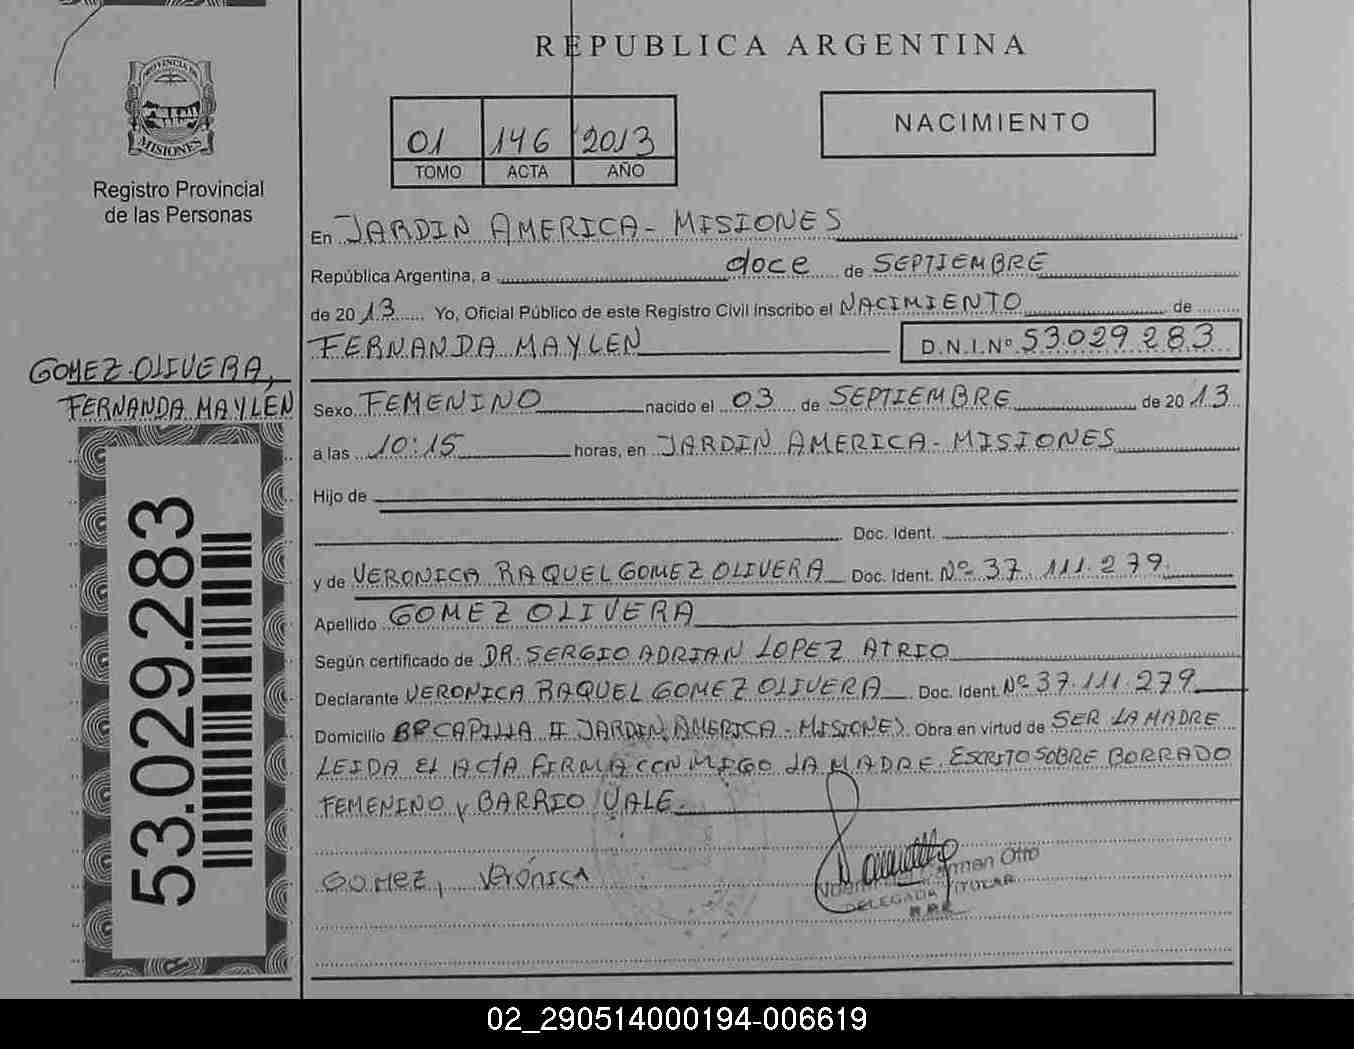 REPUBLICA ARGENTINA
PROVINCIA DE
MISIONES
Registro Provincial
de las Personas
01 146 2013
TOMO ACTA AÑO
NACIMIENTO
En JARDIN AMERICA - MISIONES
República Argentina, a doce de SEPTIEMBRE
de 2013 Yo, Oficial Público de este Registro Civil Inscribo el NACIMIENTO de
FERNANDA MAYLEN D.N.I.Nº 53.029.283
GOMEZ OLIVERA,
FERNANDA MAYLEN
Sexo FEMENINO nacido el 03 de SEPTIEMBRE de 2013
a las 10:15 horas, en JARDIN AMERICA - MISIONES
Hijo de
Doc. Ident.
y de VERONICA RAQUEL GOMEZ OLIVERA Doc. Ident. Nº 37.111.279
Apellido GOMEZ OLIVERA
Según certificado de DR. SERGIO ADRIAN LOPEZ ATRIO
Declarante VERONICA RAQUEL GOMEZ OLIVERA Doc. Ident. Nº 37.111.279
Domicilio Bº CAPILLA II JARDIN AMERICA - MISIONES Obra en virtud de SER LA MADRE
LEIDA EL ACTA FIRMA CONMIGO LA MADRE. ESCRITO SOBRE BORRADO
FEMENINO y BARRIO VALE.
Gomez, Verónica
Carmen Otto
DELEGADA TITULAR
53.029.283
02_290514000194-006619